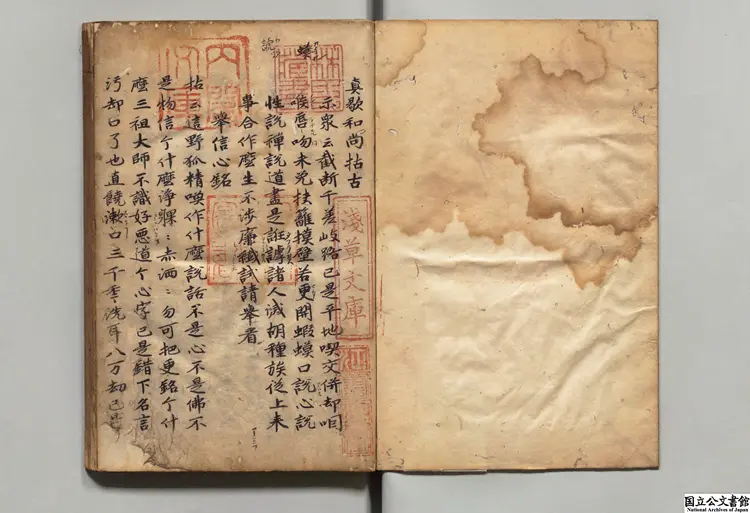 真歇和尚拈古
示衆云截断千差岐路已是平地喫交併却咽
喉唇吻未免扶籬摸壁若更開蝦蟆口說心說
性說禪說道盡是誑謼諸人滅胡種族從上来
事合作麼生不渉廉纖試請舉看
舉信心銘
拈云這野狐精喚作什麼說話不是心不是佛不
是物信个什麼淨躶〻赤洒〻勿可把更銘个什
麼三祖大師不識好悪道个心字已是錯下名言
汚却口了也直饒漱口三千季洗耳八万劫已是
淺草文庫
林氏藏書
国立公文書館
National Archives of Japan